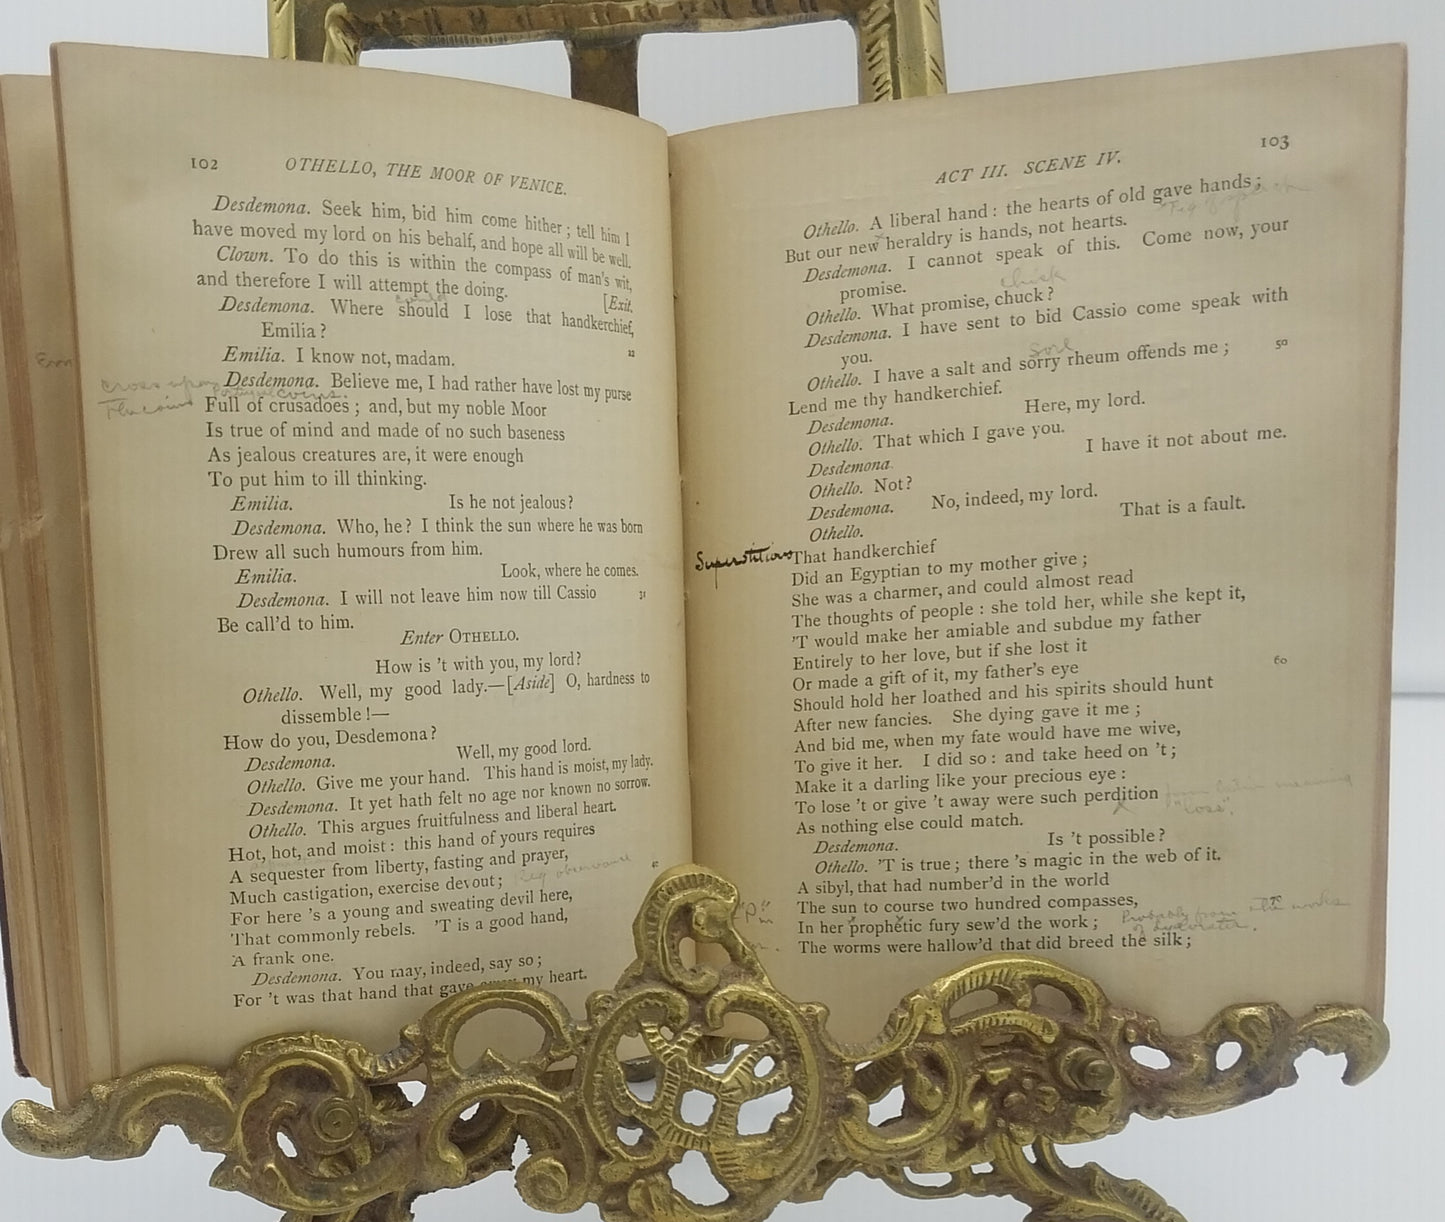 102 OTHELLO, THE MOOR OF VENICE.
Desdemona. Seek him, bid him come hither; tell him I
have moved my lord on his behalf, and hope all will be well.
Clown. To do this is within the compass of man's wit,
and therefore I will attempt the doing. [Exit.
could
Desdemona. Where should I lose that handkerchief,
Emilia? 22
Emilia. I know not, madam.
Desdemona. Believe me, I had rather have lost my purse
cross upon
coins.
the coins
Full of crusadoes; and, but my noble Moor
Is true of mind and made of no such baseness
As jealous creatures are, it were enough
To put him to ill thinking.
Emilia. Is he not jealous?
Desdemona. Who, he? I think the sun where he was born
Drew all such humours from him.
Emilia. Look, where he comes.
Desdemona. I will not leave him now till Cassio 31
Be call'd to him.
Enter OTHELLO.
How is 't with you, my lord?
Othello. Well, my good lady.—[Aside] O, hardness to
dissemble!—
How do you, Desdemona?
Desdemona. Well, my good lord.
Othello. Give me your hand. This hand is moist, my lady.
Desdemona. It yet hath felt no age nor known no sorrow.
Othello. This argues fruitfulness and liberal heart.
Hot, hot, and moist: this hand of yours requires
A sequester from liberty, fasting and prayer, 40
Much castigation, exercise devout;
For here 's a young and sweating devil here,
That commonly rebels. 'T is a good hand,
A frank one.
Desdemona. You may, indeed, say so;
For 't was that hand that gave away my heart.
ACT III. SCENE IV. 103
Othello. A liberal hand: the hearts of old gave hands;
But our new heraldry is hands, not hearts.
Desdemona. I cannot speak of this. Come now, your
promise.
chick
Othello. What promise, chuck?
Desdemona. I have sent to bid Cassio come speak with
you.
Othello. I have a salt and sorry rheum offends me; 50
Lend me thy handkerchief.
Desdemona. Here, my lord.
Othello. That which I gave you.
Desdemona. I have it not about me.
Othello. Not?
Desdemona. No, indeed, my lord.
Othello. That is a fault.
Superstitions That handkerchief
Did an Egyptian to my mother give;
She was a charmer, and could almost read
The thoughts of people: she told her, while she kept it,
'T would make her amiable and subdue my father
Entirely to her love, but if she lost it
Or made a gift of it, my father's eye 60
Should hold her loathed and his spirits should hunt
After new fancies. She dying gave it me;
And bid me, when my fate would have me wive,
To give it her. I did so: and take heed on 't;
Make it a darling like your precious eye:
To lose 't or give 't away were such perdition from Latin meaning
"loss".
As nothing else could match.
Desdemona. Is 't possible?
Othello. 'T is true; there 's magic in the web of it.
A sibyl, that had number'd in the world
The sun to course two hundred compasses, 70
In her prophetic fury sew'd the work; Probably from the works
The worms were hallow'd that did breed the silk;